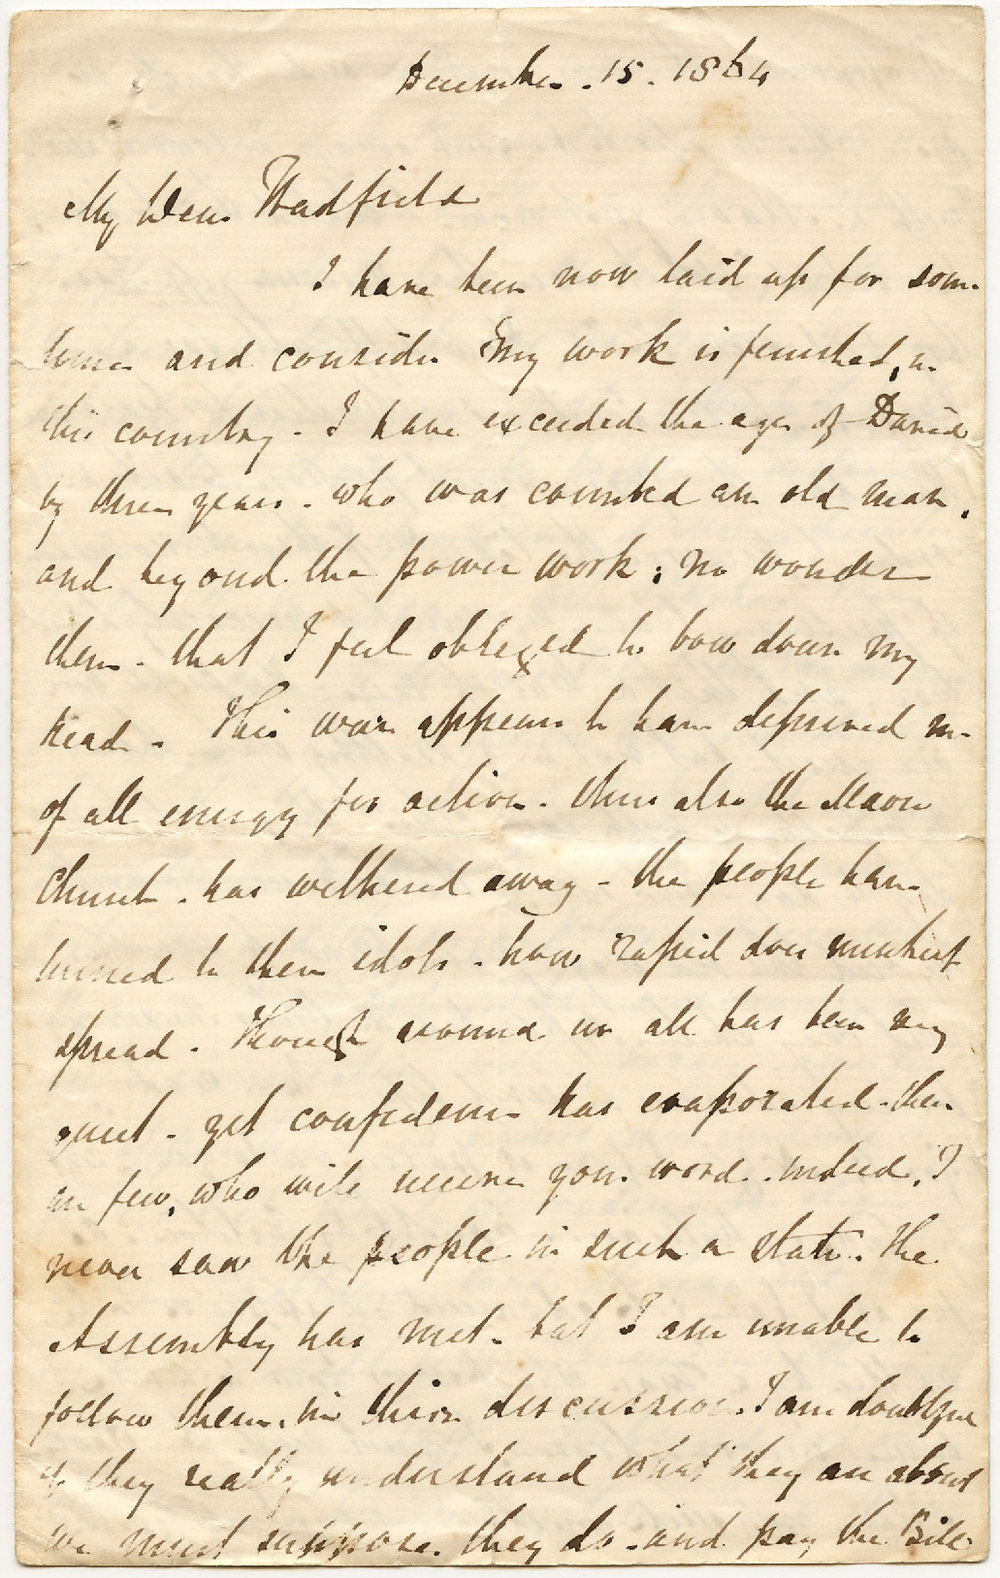 December. 15. 1864
My Dear Hadfield
I have been now laid up for some
time and consider my work is finished, in
this country. I have exceeded the age of David
by three years. who was counted an old man,
and beyond the power work; no wonder
then. that I feel obliged to bow down my
head. This war appears to have deprived me
of all energy for action. thus also the Maori
Church. has withered away. the people have
turned to their idols. how rapid does mischief
spread. Though around us all has been very
quiet. yet confidence has evaporated. there
are few, who will receive your word. indeed, I
never saw the people in such a state. The
Assembly has met. but I am unable to
follow them. in their discussion. I am doubtful
if they really understand what they are about
we must suppose. they do. and pay the Bill